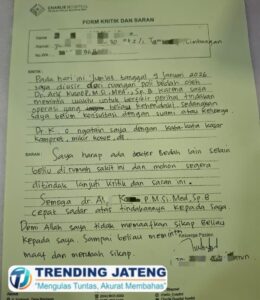 CHARLIE HOSPITAL
FORM KRITIK DAN SARAN
KRITIK :
Pada hari ini Jum'at tanggal 9 Januari 2026
saya diusir dari ruangan poli bedah oleh
Dr. Arif K P, M.Si, Med, Sp.B karena saya
meminta waktu untuk berpikir perihal tindakan
operasi yang beliau kehendaki, sedangkan
saya belum konsultasi dengan suami atau keluarga.
Dr. K. ngatain saya dengan kata-kata kasar
kampret, mikir kowe, dll.
SARAN :
Saya harap ada dokter Bedah lain selain
beliau di rumah sakit ini dan mohon segera
ditindak lanjuti kritik dan saran ini.
Semoga dr. P, M.Si, Med, Sp.B
cepat sadar atas tindakannya kepada saya
Demi Allah saya tidak memaafkan sikap Beliau
kepada saya. Sampai beliau
maaf dan merubah sikap.
Keluarga Pasien
TRENDING JATENG
"Mengulas Tuntas, Akurat Membahas"